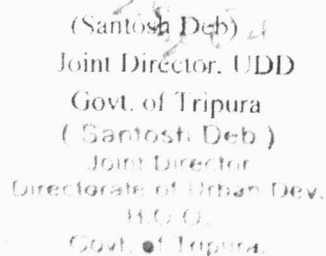 (Santosh Deb)
Joint Director. UDD
Govt. of Tripura
( Santosh Deb )
Joint Director
Directorate of Urban Dev.
H.O.O.
Govt. of Tripura.